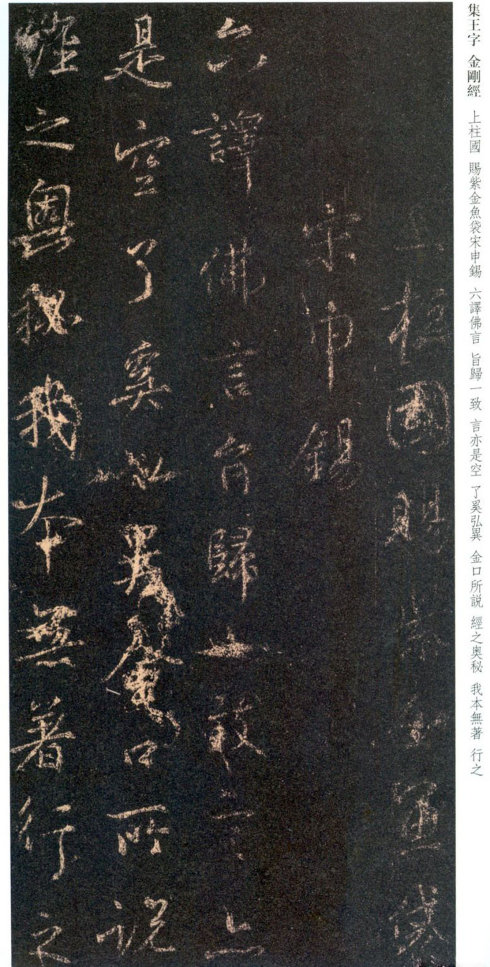 集王字 金剛經 上柱國 賜紫金魚袋宋申錫 六譯佛言 旨歸一致 言亦是空 了奚弘異 金口所説 經之奧秘 我本無著 行之
上柱國賜紫金魚袋
宋申錫
六譯佛言旨歸一致言亦
是空了奚弘異金口所説
經之奧秘我本無著行之